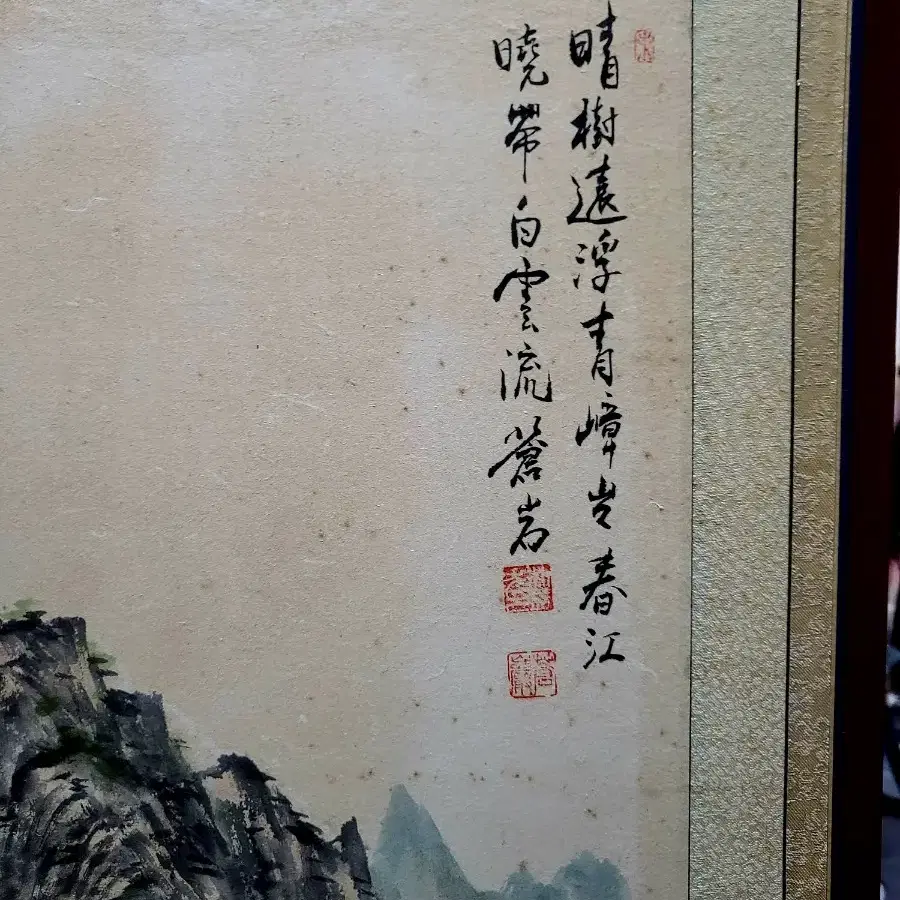 晴樹遠浮青嶂出春江
曉帶白雲流 蒼岩